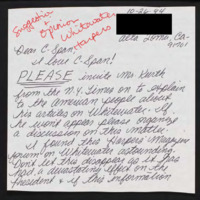 Suggestion
Opinion
Whitewater
Harpers
10-26-94
Alta Loma, Ca.
91701
Dear C Span,
I love C-Span!
PLEASE invite Mr. 
from the N.Y. Times on to explain
to the American people about
his articles on Whitewater. If
he wont appear please organize
a discussion on this matter.
I found this Harpers Magazine
on Whitewater astounding.
Dont let this disappear as it has
had a devastating effect on the
President & if this information